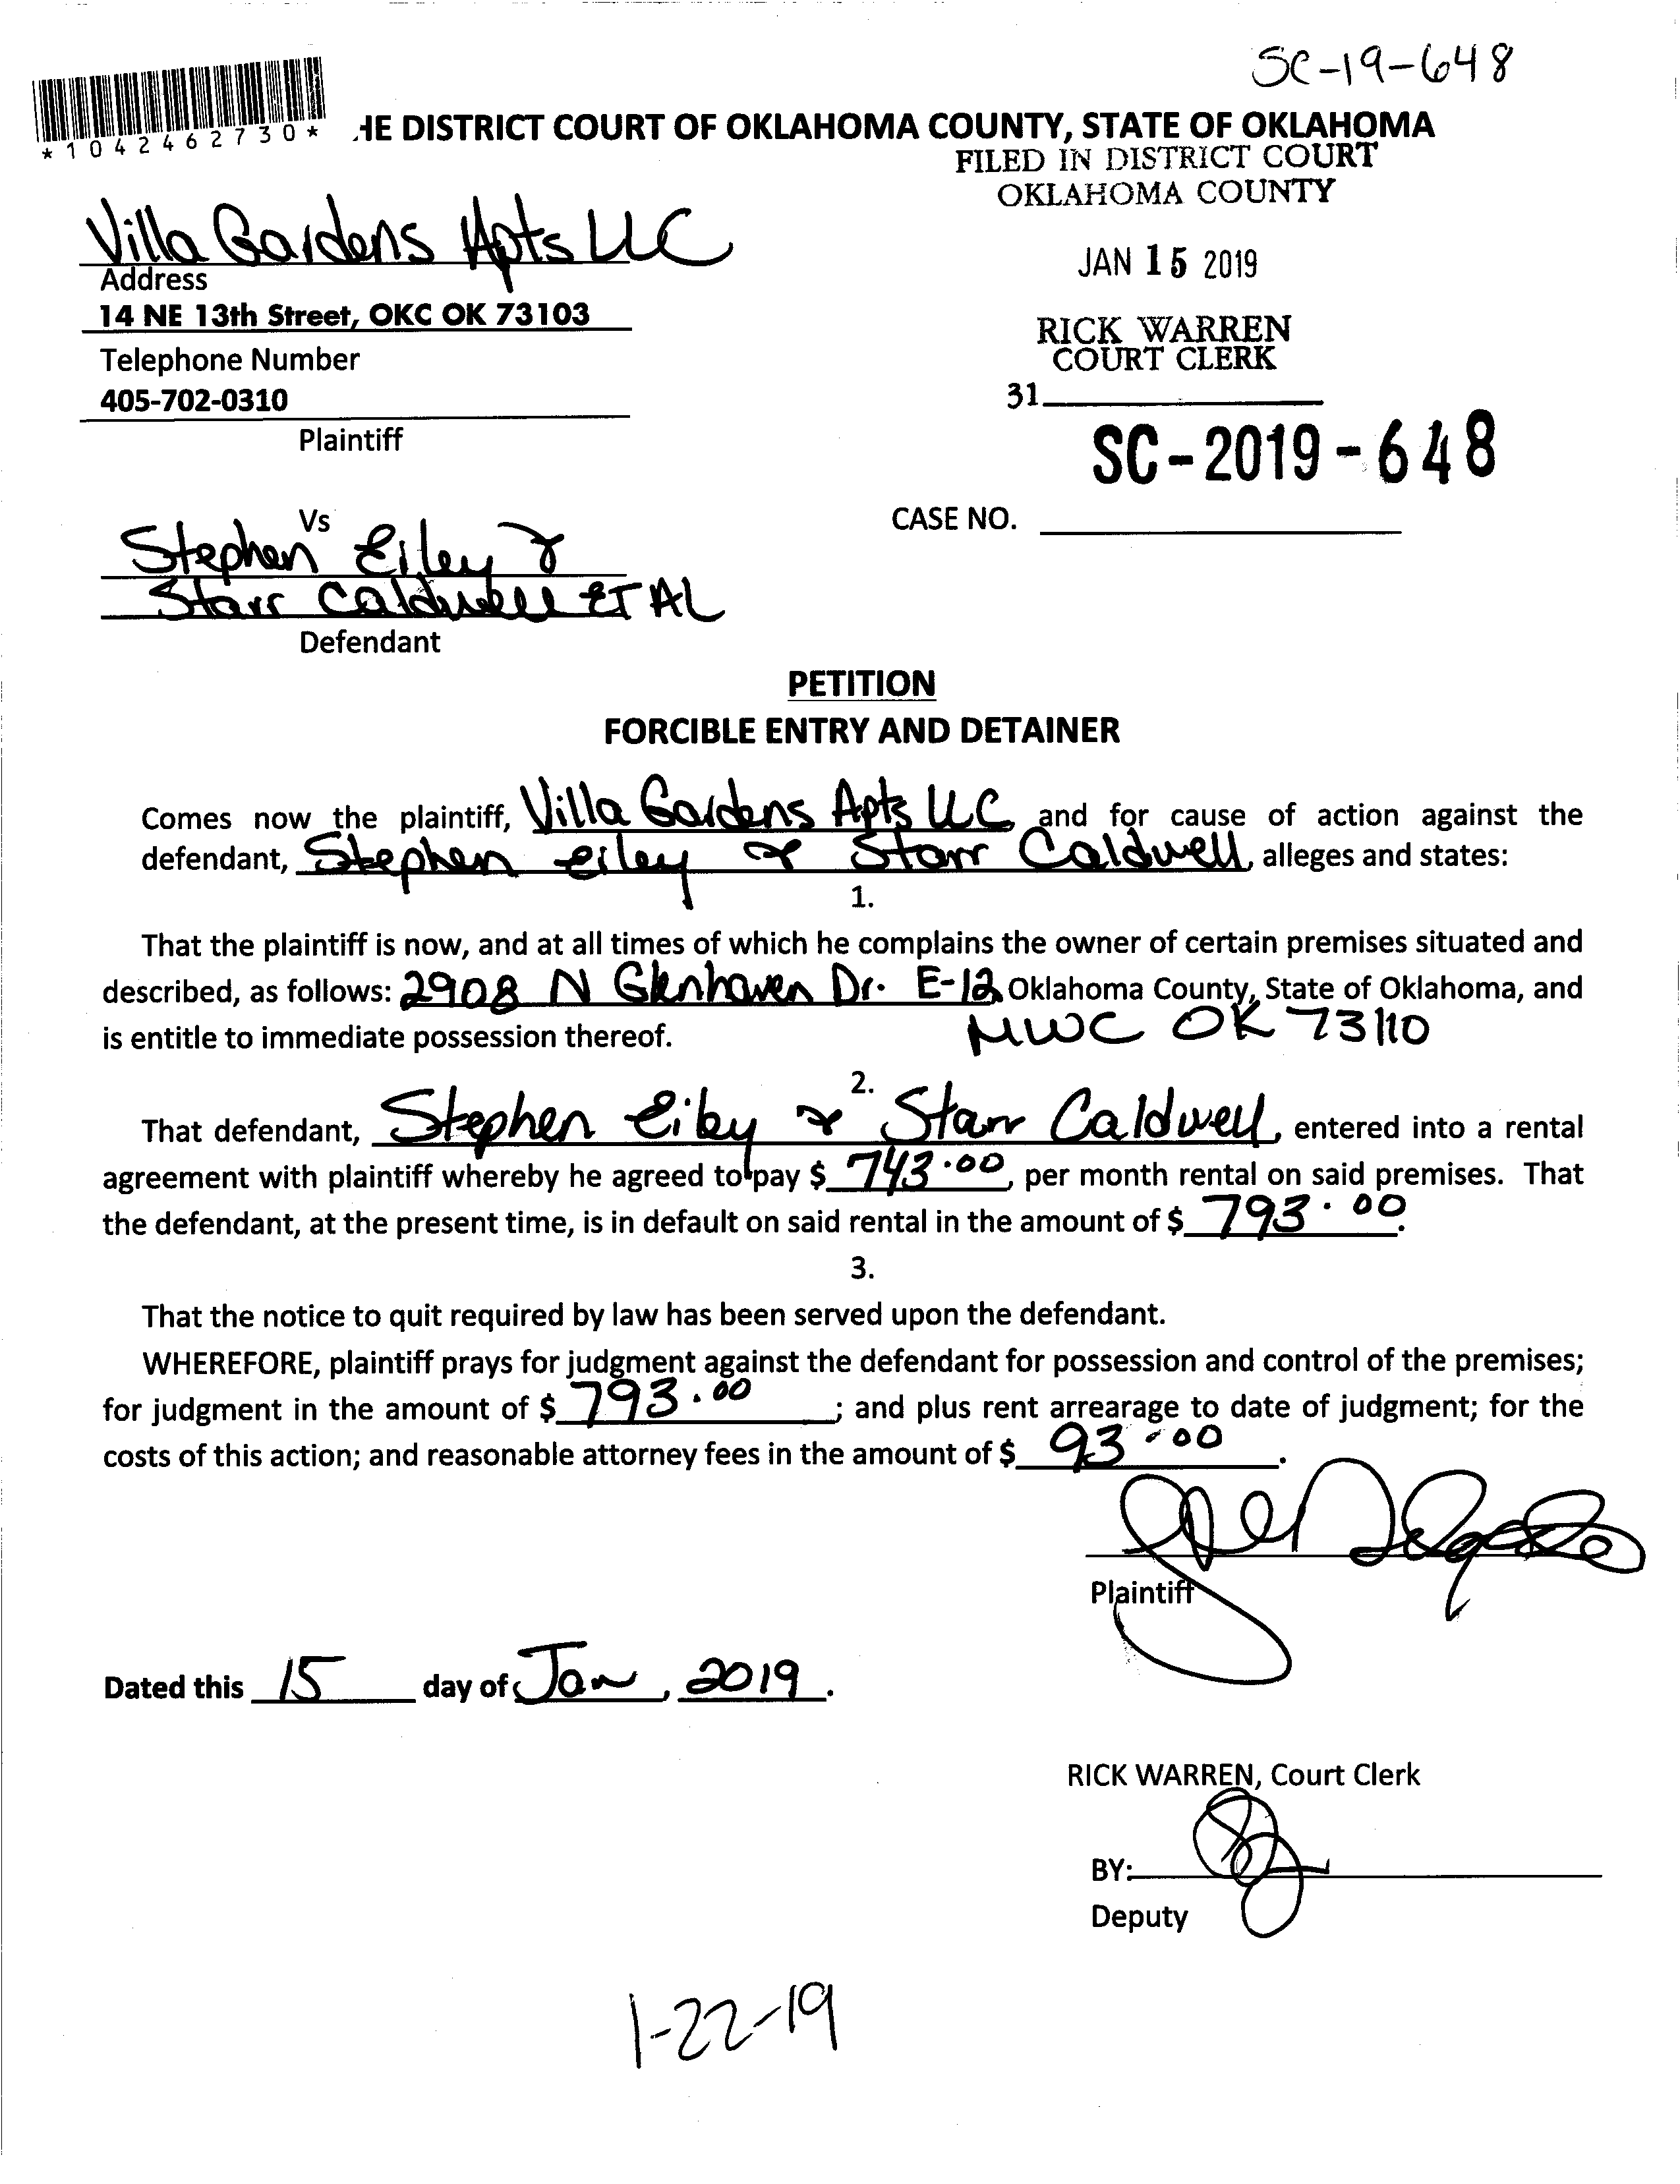 SC-19-648
*1042462730*
HE DISTRICT COURT OF OKLAHOMA COUNTY, STATE OF OKLAHOMA
FILED IN DISTRICT COURT
OKLAHOMA COUNTY
Villa Gardens Apts LLC
Address
JAN 15 2019
14 NE 13th Street, OKC OK 73103
RICK WARREN
COURT CLERK
Telephone Number
405-702-0310
31
Plaintiff
SC-2019-648
Vs
CASE NO.
Stephen Eiley &
Starr Caldwell ET AL
Defendant
PETITION
FORCIBLE ENTRY AND DETAINER
Comes now the plaintiff, Villa Gardens Apts LLC and for cause of action against the
defendant, Stephen Eiley & Starr Caldwell, alleges and states:
1.
That the plaintiff is now, and at all times of which he complains the owner of certain premises situated and
described, as follows: 2908 N Glenhaven Dr. E-12 Oklahoma County, State of Oklahoma, and
is entitle to immediate possession thereof. MWC OK 73110
2.
That defendant, Stephen Eiley & Starr Caldwell, entered into a rental
agreement with plaintiff whereby he agreed to pay $ 743.00, per month rental on said premises. That
the defendant, at the present time, is in default on said rental in the amount of $ 793.00.
3.
That the notice to quit required by law has been served upon the defendant.
WHEREFORE, plaintiff prays for judgment against the defendant for possession and control of the premises;
for judgment in the amount of $ 793.00; and plus rent arrearage to date of judgment; for the
costs of this action; and reasonable attorney fees in the amount of $ 93.00.
Plaintiff
Dated this 15 day of Jan, 2019.
RICK WARREN, Court Clerk
BY:
Deputy
1-22-19